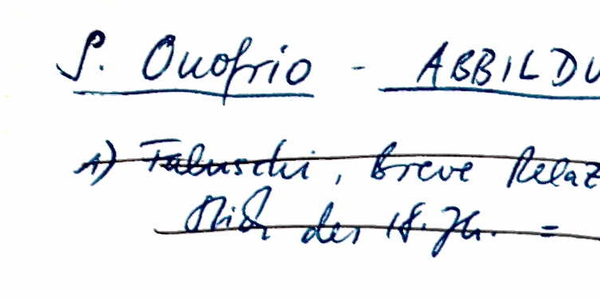 S. Onofrio - ABBILDU
A) Fabuschi, Breve Relaz
Stich des 18. Jh. =